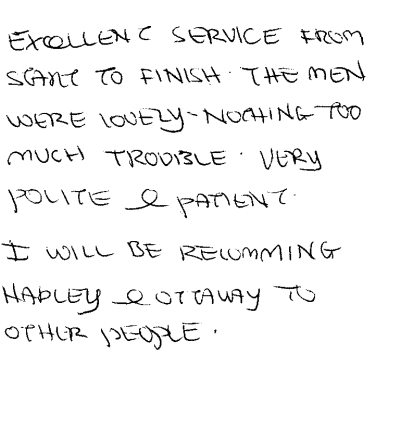 EXCELLENT SERVICE FROM
START TO FINISH. THE MEN
WERE LOVELY - NOTHING TOO
MUCH TROUBLE. VERY
POLITE & PATIENT.
I WILL BE RECOMMING
HADLEY & OTTAWAY TO
OTHER PEOPLE.